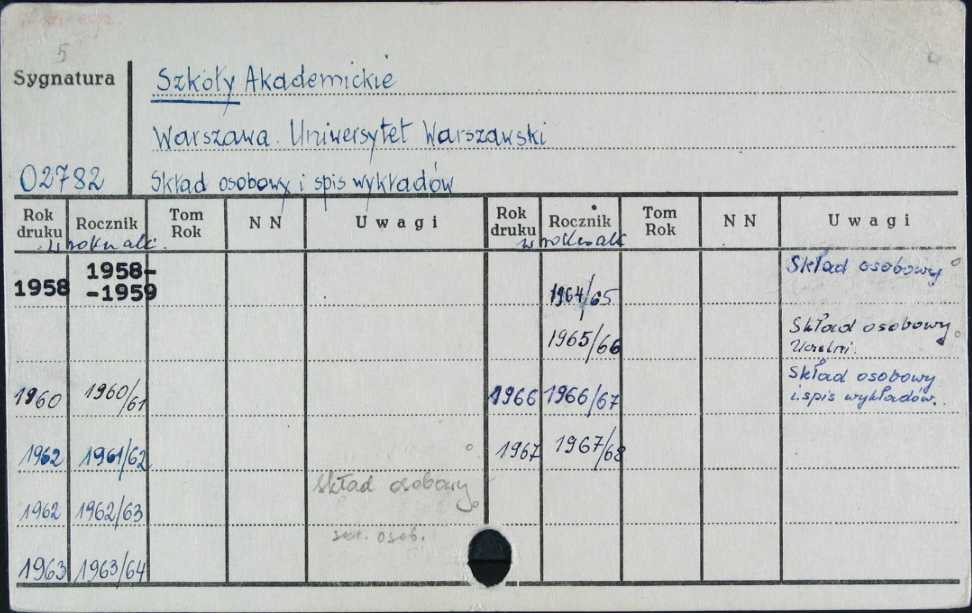 5
Sygnatura
Szkoły Akademickie
Warszawa. Uniwersytet Warszawski
02782
Skład osobowy i spis wykładów
Rok druku Rocznik Tom Rok N N Uwagi Rok druku Rocznik Tom Rok N N Uwagi
w roku ak. w roku ak
1958 1958-
-1959
1964/65 Skład osobowy
1965/66 Skład osobowy
Uczelni.
1960 1960/61 1966 1966/67 Skład osobowy
i spis wykładów.
1962 1961/62 1967 1967/68
1962 1962/63 Skład osobowy
osob.
1963 1963/64